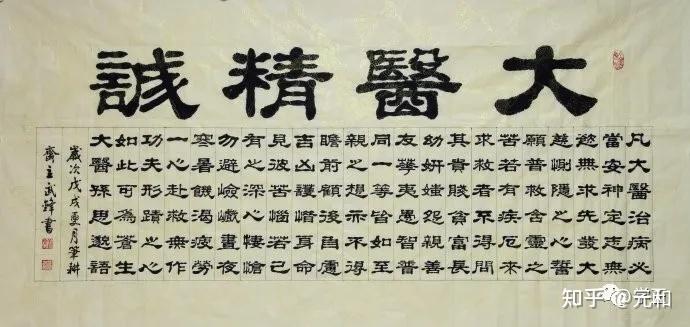 大醫精誠
凡大醫治病必
當安神定志無
慾無求先發大
慈惻隱之心誓
願普救含靈之
苦若有疾厄來
求救者不得問
其貴賤貧富長
幼妍媸怨親善
友華夷愚智普
同一等皆如至
親之想亦不得
瞻前顧後自慮
吉凶護惜身命
見彼苦惱若己
有之深心悽愴
勿避險巇晝夜
寒暑饑渴疲勞
一心赴救無作
功夫形蹟之心
如此可為蒼生
大醫孫思邈語
歲次戊戌夏月筆耕
齋主武鋒書
知乎